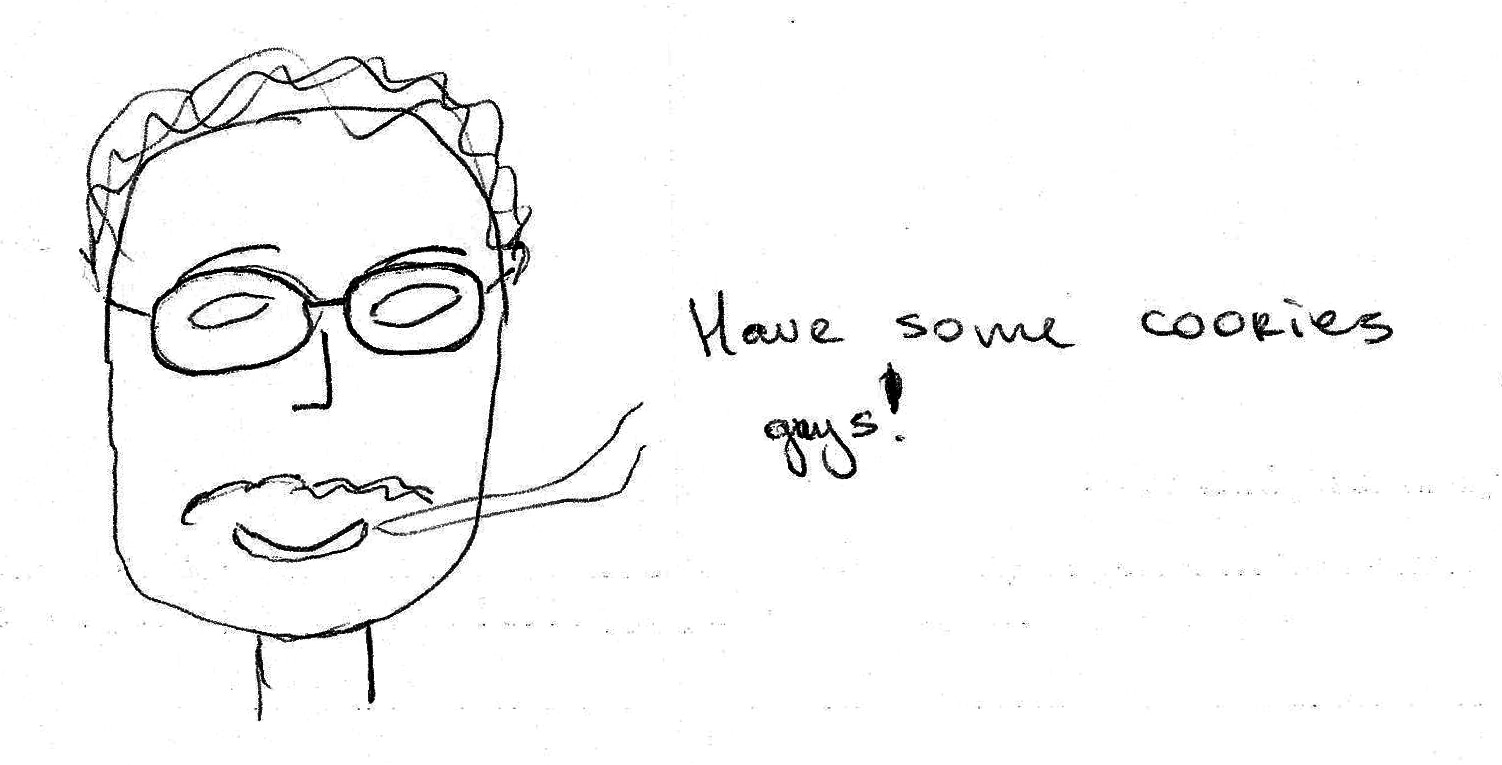 Have some cookies
guys!